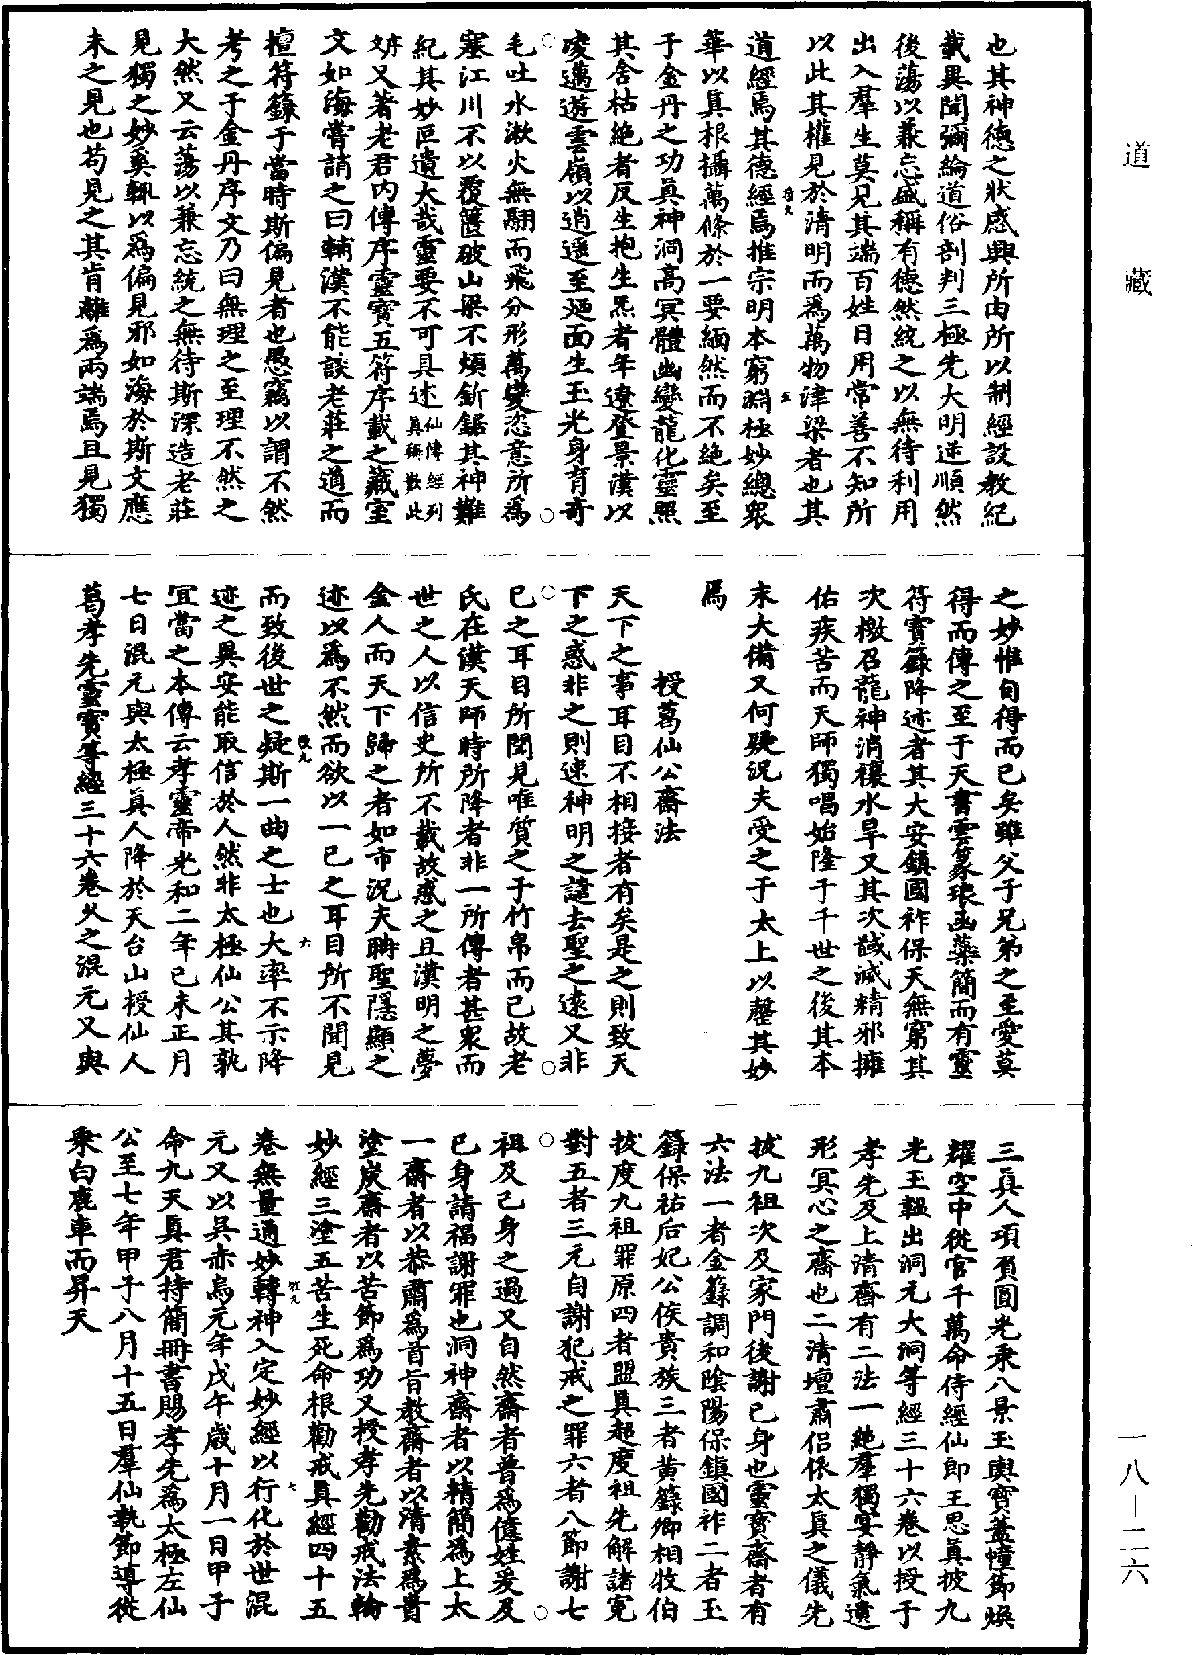 道藏
也其神德之狀感興所由所以制經設教紀
載異聞彌綸道俗剖判三極先大明逆順然
後蕩以兼忘盛稱有德然統之以無待利用
出入羣生莫見其端百姓日用常善不知所
以此其權見於清明而爲萬物津梁者也其
道經焉其德經焉推宗明本窮淵極妙總衆
華以真根攝萬條於一要緬然而不絶矣至
于金丹之功真神洞高冥體幽變龍化靈照
其含枯絶者反生抱生炁者年遼登景漢以
凌邁遊雲嶺以逍遥至廼面生玉光身育奇
毛吐水漱火無翮而飛分形萬變恣意所爲
塞江川不以覆簣破山梁不煩釿鋸其神難
紀其妙叵遺大哉靈要不可具述仙傳經列真稱數此
㢤又著老君内傳序靈寳五符序載之藏室
文如海嘗誚之曰輔漢不能談老莊之道而
擅符籙于當時斯偏見者也愚竊以謂不然
考之于金丹序文乃曰無理之至理不然之
大然又云蕩以兼忘統之無待斯深造老莊
見獨之妙奚輒以爲偏見邪如海於斯文應
未之見也苟見之其肯離爲兩端焉且見獨
之妙惟自得而已矣雖父子兄弟之至愛莫
得而傳之至于天書雲篆琅函蘂簡而有靈
符寳籙降迹者其大安鎮國祚保天無窮其
次檄召龍神消禳水旱又其次馘滅精邪擁
佑疾苦而天師獨唱始隆于千世之後其本
末大備又何疑況夫受之于太上以罄其妙
焉
授葛仙公齋法
天下之事耳目不相接者有矣是之則致天
下之惑非之則速神明之譴去聖之遠又非
已之耳目所聞見唯質之于竹帛而已故老
氏在漢天師時所降者非一所傳者甚衆而
世之人以信史所不載故惑之且漢明之夢
金人而天下歸之者如市況夫聃聖隱顯之
迹以爲不然而欲以一已之耳目所不聞見
而致後世之疑斯一曲之士也大率不示降
迹之異安能取信於人然非太極仙公其孰
宜當之本傳云孝靈帝光和二年己未正月
七日混元與太極真人降於天台山授仙人
葛孝先靈寳等經三十六卷久之混元又與
三真人項負圓光乘八景玉輿寳蓋幢節煥
耀空中從官千萬命侍經仙郎王思真披九
光玉韞出洞元大洞等經三十六卷以授于
孝先及上清齋有二法一絶羣獨宴靜氣遺
形冥心之齋也二清壇肅侣依太真之儀先
拔九祖次及家門後謝已身也靈寳齋者有
六法一者金籙調和陰陽保鎮國祚二者玉
籙保祐后妃公侯貴族三者黄籙卿相牧伯
拔度九祖罪原四者盟真超度祖先解諸寃
對五者三元自謝犯戒之罪六者八節謝七
祖及已身之過又自然齋者普爲億姓爰及
已身請福謝罪也洞神齋者以精簡爲上太
一齋者以恭肅爲首旨教齋者以清素爲貴
塗炭齋者以苦節爲功又授孝先勸戒法輪
妙經三塗五苦生死命根勸戒真經四十五
卷無量通妙轉神入定妙經以行化於世混
元又以吴赤烏元年戊午歲十月一日甲子
命九天真君持簡冊書賜孝先爲太極左仙
公至七年甲子八月十五日羣仙執節導從
乘白鹿車而昇天
一八—二六